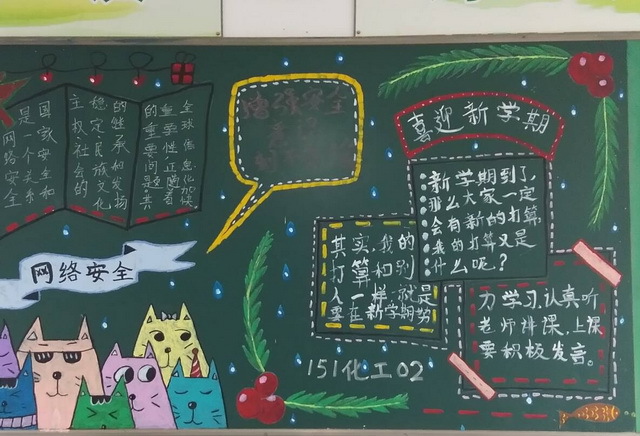 网络安全
是一个关系
国家安全和
主权社会的
稳定民族文化
的继承和发扬
的重要问题.其
重要性正随着
全球信息化加
网络安全
喜迎新学期
新学期到了,
那么大家一定
会有新的打算,
我的打算又是
什么呢?
其实,我的
打算和别
人一样,就是
要在新学期努
力学习,认真听
老师讲课,上课
要积极发言。
151化工02